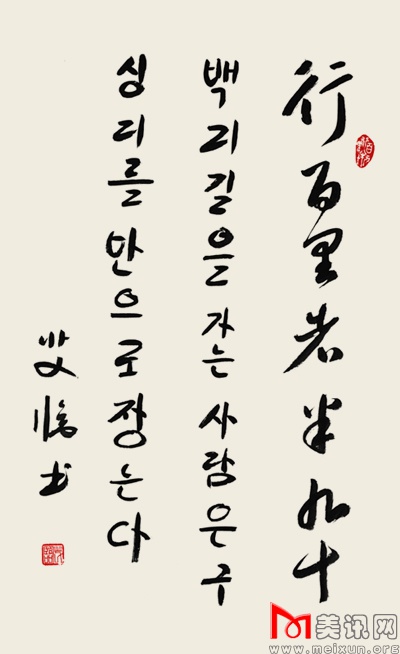 行百里者半九十
백리길을 가는 사람은 구
십리를 반으로 잡는다
美讯网
www.meixun.org